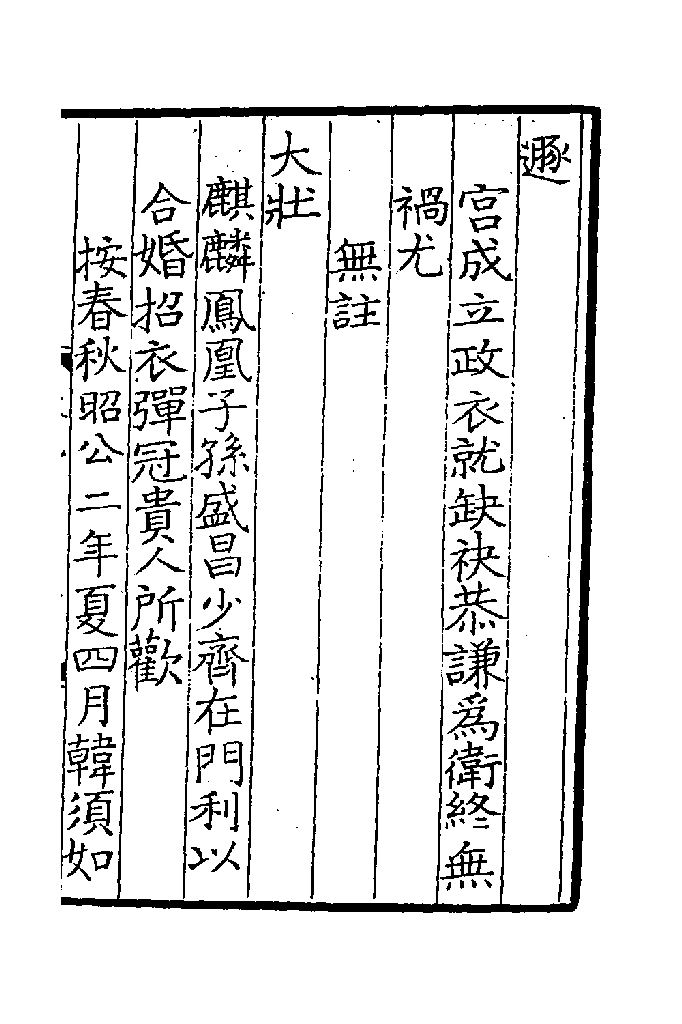 遯
宫成立政衣就缺袂恭謙為衛終無
禍尤
無註
大壯
麒麟鳳凰子孫盛昌少齊在門利以
合婚招衣彈冠貴人所歡
按春秋昭公二年夏四月韓須如